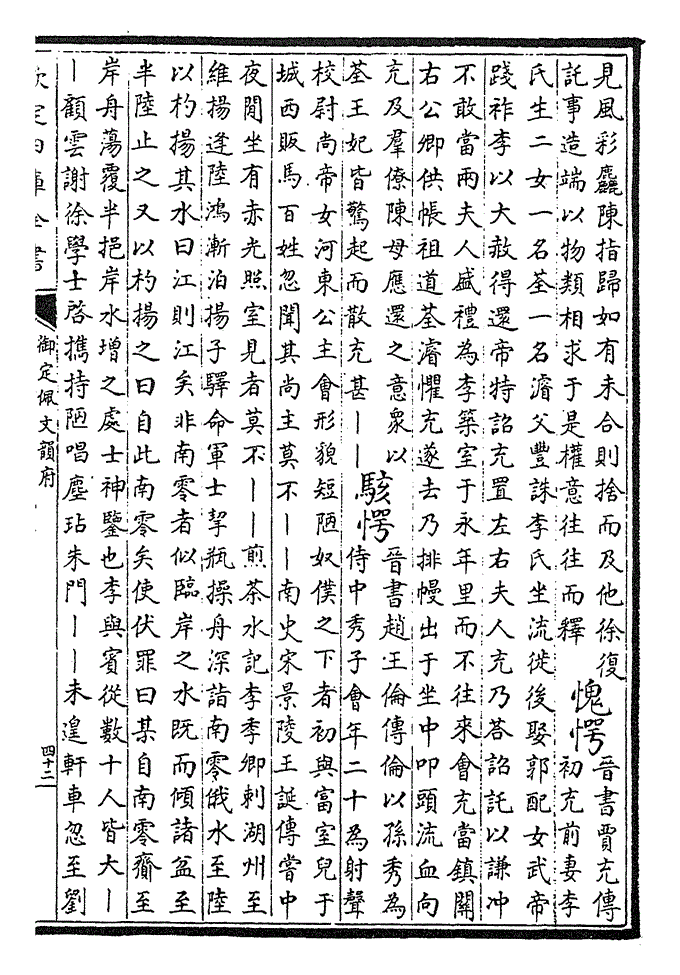 見風彩麤陳指歸如有未合則捨而及他徐復
託事造端以物類相求于是權意往往而釋
愧愕
晉書賈充傳
初充前妻李
氏生二女一名荃一名濬父豐誅李氏坐流徙後娶郭配女武帝
踐祚李以大赦得還帝特詔充置左右夫人充乃荅詔託以謙冲
不敢當兩夫人盛禮為李築室于永年里而不往來會充當鎮關
右公卿供帳祖道荃濬懼充遂去乃排幔出于坐中叩頭流血向
充及羣僚陳母應還之意衆以
荃王妃皆驚起而散充甚||
駭愕
晉書趙王倫傳倫以孫秀為
侍中秀子會年二十為射聲
校尉尚帝女河東公主會形貌短陋奴僕之下者初與富室兒于
城西販馬百姓忽聞其尚主莫不||南史宋景陵王誕傳嘗中
夜閒坐有赤光照室見者莫不||煎茶水記李季卿刺湖州至
維揚逢陸鴻漸泊揚子驛命軍士挈瓶操舟深詣南零俄水至陸
以杓揚其水曰江則江矣非南零者似臨岸之水既而傾諸盆至
半陸止之又以杓揚之曰自此南零矣使伏罪曰某自南零齎至
岸舟蕩覆半挹岸水增之處士神鑒也李與賓從數十人皆大|
|顧雲謝徐學士啓攜持陋唱塵玷朱門||未遑軒車忽至劉
欽定四庫全書
御定佩文韻府
四十二